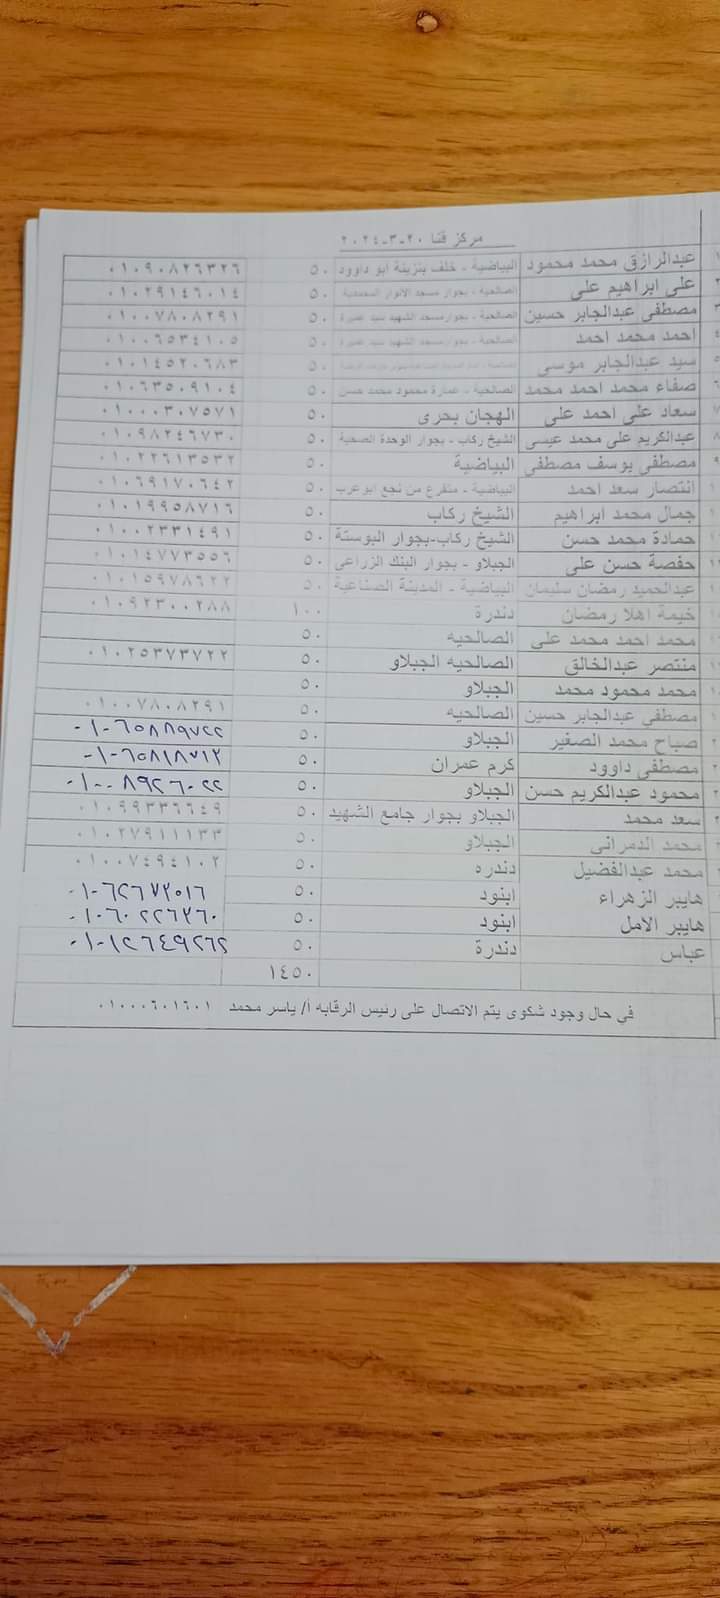 مركز قنا ٢٠-٣-٢٠٢٤
عبدالرازق محمد محمود البياضية - خلف بنزينة ابو داوود ٥٠ ٠١٠٩٠٨٢٦٣٢٦
على ابراهيم على الصالحية - بجوار مسجد الانوار المحمدية ٥٠ ٠١٠٢٩١٤٦٠١٤
مصطفى عبدالجابر حسين الصالحية - بجوار مسجد الشهيد سيد ٥٠ ٠١٠٠٧٨٠٨٢٩١
احمد محمد احمد الصالحية - بجوار مسجد الشهيد سيد ٥٠ ٠١٠٠٦٥٣٤١٠٥
سيد عبدالجابر موسى ٥٠ ٠١٠١٤٥٢٠٦٨٣
صفاء محمد احمد محمد الصالحية - عمارة محمود محمد حسن ٥٠ ٠١٠٦٣٥٠٩١٠٤
سعاد على احمد على الهجان بحرى ٥٠ ٠١٠٠٠٣٠٧٥٧١
عبدالكريم على محمد عيسى الشيخ ركاب - بجوار الوحدة الصحية ٥٠ ٠١٠٩٨٢٤٦٧٣٠
مصطفى يوسف مصطفى البياضية ٥٠ ٠١٠٢٢٦١٣٥٣٢
انتصار سعد احمد البياضية - متفرع من نجع ابو عرب ٥٠ ٠١٠٦٩١٧٠٦٤٢
جمال محمد ابراهيم الشيخ ركاب ٥٠ ٠١٠١٩٩٥٨٧١٦
حمادة محمد حسن الشيخ ركاب-بجوار البوستة ٥٠ ٠١٠٠٢٣٣١٤٩١
حفصة حسن على الجبلاو - بجوار البنك الزراعى ٥٠ ٠١٠١٤٧٧٣٥٥٦
عبدالحميد رمضان سليمان البياضية - المدينة الصناعية ٥٠ ٠١٠١٥٩٧٨٦٢٢
خيمة اهلا رمضان دندرة ١٠٠ ٠١٠٩٢٣٠٠٢٨٨
محمد احمد محمد على الصالحيه ٥٠
منتصر عبدالخالق الصالحيه الجبلاو ٥٠ ٠١٠٢٥٣٧٣٧٢٢
محمد محمود محمد الجبلاو ٥٠
مصطفى عبدالجابر حسين الصالحيه ٥٠ ٠١٠٠٧٨٠٨٢٩١
صباح محمد الصغير الجبلاو ٥٠ ٠١٠٦٥٨٨٩٧٢٢
مصطفى داوود كرم عمران ٥٠ ٠١٠٦٥٨١٨٧١٢
محمود عبدالكريم حسن الجبلاو ٥٠ ٠١٠٠٨٩٢٦٠٢٢
سعد محمد الجبلاو بجوار جامع الشهيد ٥٠ ٠١٠٩٩٣٣٦٦٤٩
محمد الدمرانى الجبلاو ٥٠ ٠١٠٢٧٩١١١٣٣
محمد عبدالفضيل دندره ٥٠ ٠١٠٠٧٤٩٤١٠٢
هايبر الزهراء ابنود ٥٠ ٠١٠٦٢٦٧٢٥١٦
هايبر الامل ابنود ٥٠ ٠١٠٦٠٢٢٦٢٦٠
عباس دندرة ٥٠ ٠١٠١٢٦٤٩٢٦٢
١٤٥٠
في حال وجود شكوى يتم الاتصال على رئيس الرقابه أ/ ياسر محمد ٠١٠٠٠٦٠١٦٠١